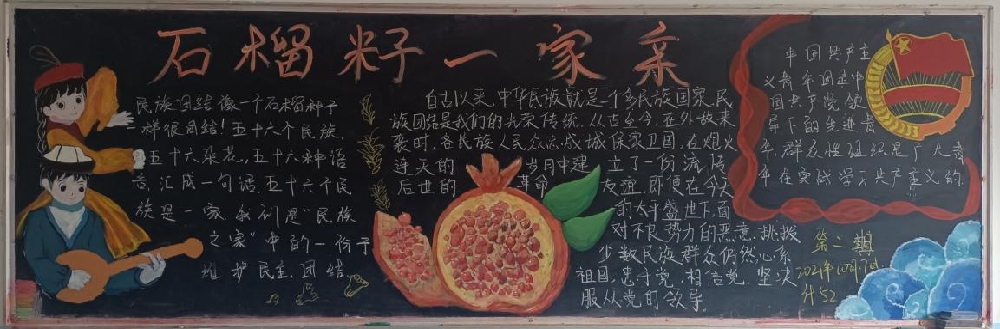 石榴籽一家亲
民族团结像一个石榴种子
一样很团结！五十六个民族，
五十六朵花。五十六种语
言，汇成一句话，五十六个民
族是一家 "民族
之家"中的一份子
维护民主，团结
自古以来，中华民族就是一个多民族国家，民
族团结是我们的光荣传统。从古至今，在外敌来
袭时，各民族人民众志成城保家卫国，在炮火
连天的 岁月中建立了一份流传
后世的 革命 友谊，即便在今天
的太平盛世下，面
对不良势力的恶意挑拨
少数民族群众仍然心系
祖国，忠于党，相信党，坚决
服从党的领导。
中国共产主
义青年团是中
国共产党领
导下的先进青
年群众性组织是广大青
年在实践学习共产主义的
第二期